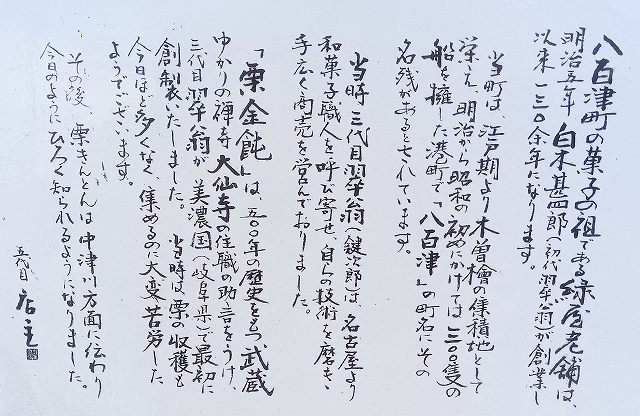 八百津町の菓子の祖である緑屋老舗は、
明治五年 白木甚四郎(初代羽卒翁)が創業し
以来一三〇余年になります。
当町は、江戸期より木曽檜の集積地として
栄え、明治から昭和の初めにかけては三〇隻の
船を擁した港町で「八百津」の町名にその
名残があるとされています。
当時三代目羽卒翁(鍵次郎)は、名古屋より
和菓子職人を呼び寄せ自らの技術を磨き、
手広く商売を営んでおりました。
「栗金飩」は、五〇年の歴史をもつ武蔵
ゆかりの禅寺大仙寺の住職の助言をうけ、
三代目羽卒翁が美濃国(岐阜県)で最初に
創製いたしました。 当時は栗の収穫も
今日ほど多くなく、集めるのに大変苦労した
ようでございます。
その後、栗きんとんは中津川方面に伝わり
今日のようにひろく知られるようになりました。
五代目 店主